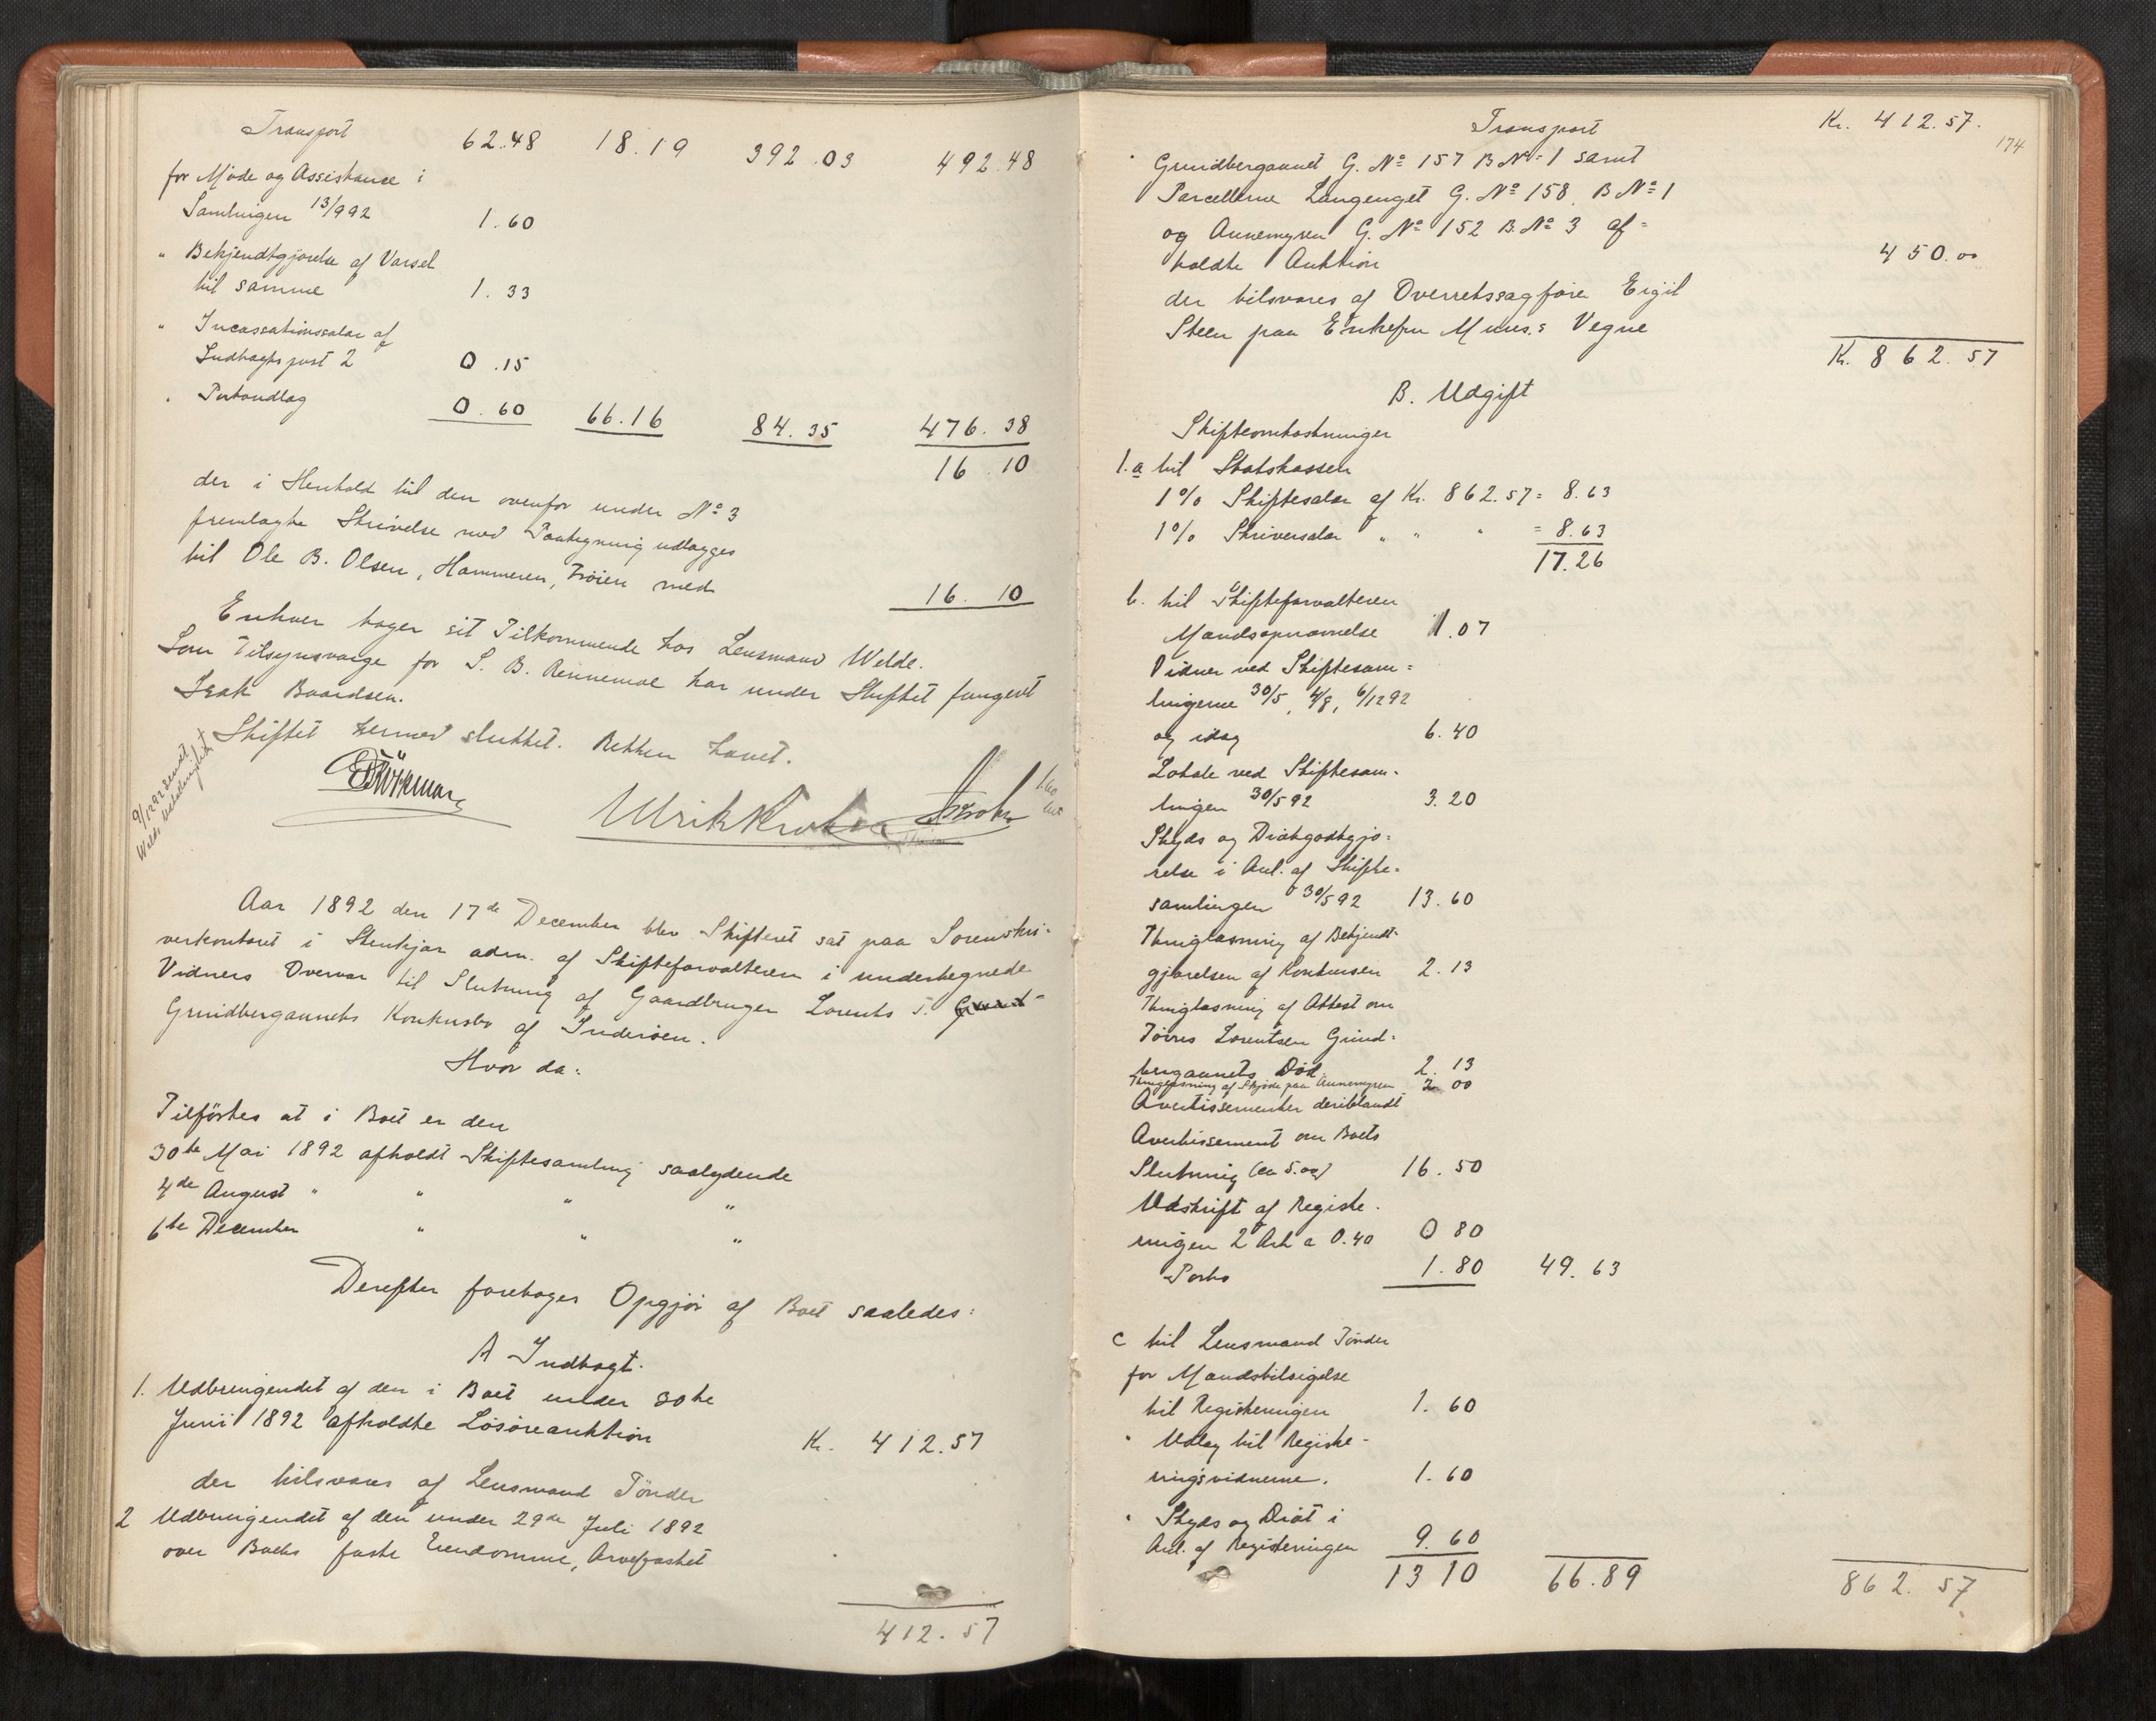 Transport 62.48 18.19 392.03 492.48
for Møde og Assistance i
Samlingen 13/992 1.60
" Bekjendtgjørelse af Varsel
til samme 1.33
" Incassationssalær af
Indtægtspost 2 0.15
" Portoudlæg 0.60 66.16 84.35 476.38
16.10
der i Henhold til den ovenfor under No 3
fremlagte Skrivelse med Paategning udlægges
til Ole B. Olsen, Hammeren, Frøien med 16.10
Enhver tager sit Tilkommende hos Lensmand Welde.
Som Tilsynsværge for S. B. Rennemoe har under Skiftet fungert
Isak Baardsen.
Skiftet hermed sluttet. Retten hævet.
9/1292 sendt
Welde
Ulrik Krohn
Aar 1892 den 17de December blev Skifteret sat paa Sorenskri-
verkontoret i Stenkjær adm. af Skifteforvalteren i undertegnede
Vidners Overvær til Slutning af Gaardbruger Lorents T.
Grindbergaunets Konkursbo af Inderøen.
Hvor da:
Tilførtes at i Boet er den
30te Mai 1892 afholdt Skiftesamling saalydende
4de August " " " "
6te December " " "
Derefter foretoges Opgjør af Boet saaledes:
A Indtægt.
1. Udbringendet af den i Boet under 30te
Juni 1892 afholdte Løsøreauktion Kr. 412.57
der tilsvares af Lensmand Tønder
2 Udbringendet af den under 29de Juli 1892
over Boets faste Eiendomme, Arvefæstet
412.57
Transport Kr. 412.57.
174
Grindbergaunet G. No 157 B No 1 samt
Parcellerne Langenget G. No 158, B No 1
og Aunemyren G. No 152 B. No 3 af=
holdte Auktion 450.00
der tilsvares af Overretssagfører Eigil
Steen paa Enkefru Muus.s Vegne
Kr. 862.57
B. Udgift
Skifteomkostninger
1.a til Statskassen
1% Skiftesalær af Kr. 862.57 = 8.63
1% Skriversalær " " " = 8.63
17.26
b. til Skifteforvalteren
Mandsopnævnelse 1.07
Vidner ved Skiftesam=
lingerne 30/5, 4/8, 6/1292
og idag 6.40
Lokale ved Skiftesam-
lingen 30/5 92 3.20
Skyds og Diætgodtgjø=
relse i Anl. af Skifte-
samlingen 30/5 92 13.60
Thinglæsning af Bekjendt-
gjørelsen af Konkursen 2.13
Thinglæsning af Attest om
Tørres Lorentsen Grind-
bergaunets Død 2.13
Thinglæsning af Skjøde paa Aunemyren 2.00
Avertissementer deriblandt
Avertissement om Boets
Slutning (ca 5.00) 16.50
Udskrift af Registe-
ringen 2 Ark a 0.40 0 80
Porto 1.80 49.63
c til Lensmand Tønder
for Mandstilsigelse
til Registreringen 1.60
" Udlæg til Registre-
ringsvidnerne. 1.60
" Skyds og Diæt i
Anl. af Registeringen 9.60
13 10 66.89 862.57